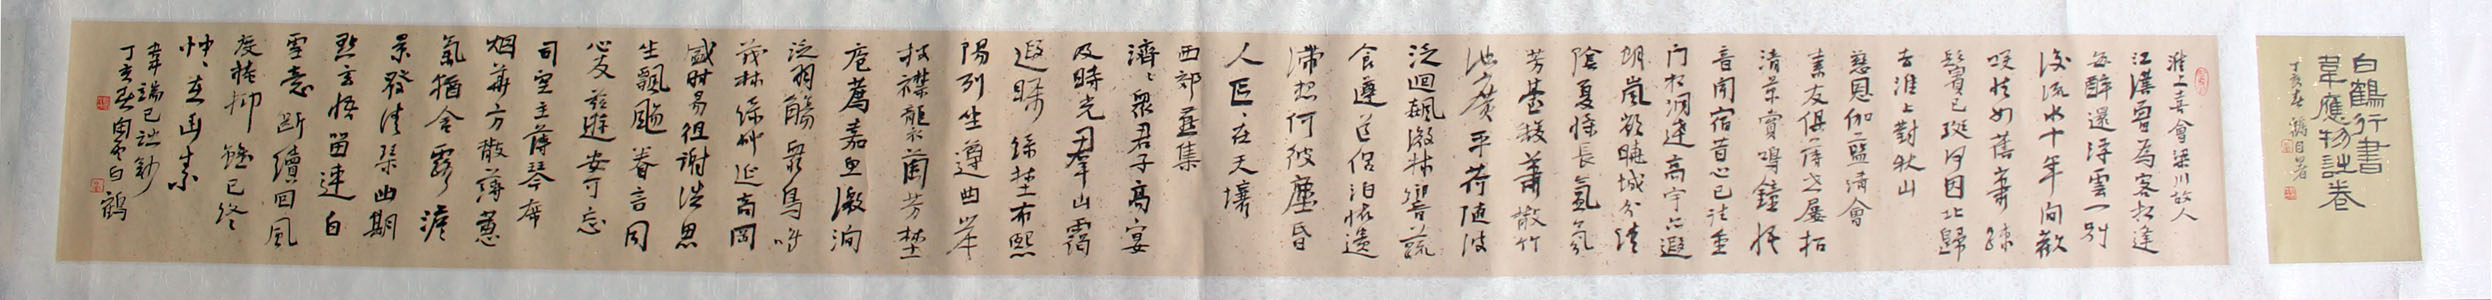 白鶴行書
韋應物詩卷
丁亥春鶴自署
淮上喜會梁川故人
江漢曾為客相逢
每醉還浮雲一別
後流水十年間歡
笑情如舊蕭疎
鬢已斑何因北歸
去淮上對秋山
慈恩伽藍清會
素友俱薄世屢招
清景賞鳴鐘悟
音聞宿昔心已往重
門相洞達高宇亦遐
朗嵐嶺曉城分清
陰夏條長氳氛
芳臺馥蕭散竹
池廣平荷隨波
泛迴飆激林響蔬
食遵道侶泊懷遺
滯想何彼塵昏
人區區在天壤
西郊燕集
濟濟眾君子高宴
及時光羣山靄
遐矚綠埜布熙
陽列坐遵曲岸
披襟襲蘭芳埜
庖薦嘉魚激澗
泛羽觴眾鳥鳴
茂林綠艸延高岡
盛時易徂謝浩思
坐飄颺眷言同
心友茲遊安可忘
司空主簿琴席
烟華方散薄蕙
氣猶含露澹
景發清琴幽期
默玄悟留連白
雪意斷續回風
度掩抑雖已終
忡忡在幽素
韋端已詩鈔
丁亥春 白鶴